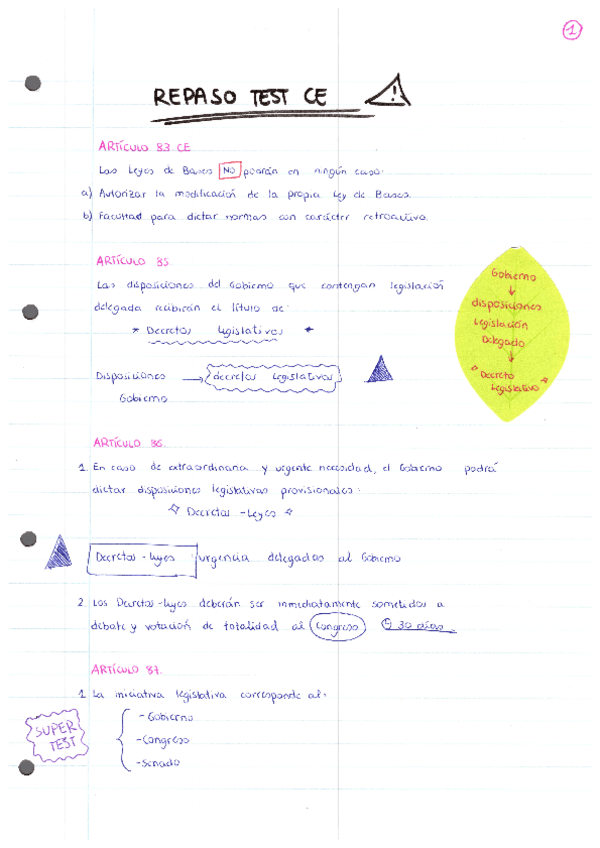 1
REPASO TEST CE
ARTÍCULO 83 CE
Las Leyes de Bases NO podrán en ningún caso:
a) Autorizar la modificación de la propia Ley de Bases
b) Facultad para dictar normas con carácter retroactivo
ARTÍCULO 85
Las disposiciones del Gobierno que contengan legislación
delegada recibirán el título de:
* Decretos Legislativos *
Disposiciones → decretos legislativos
Gobierno
Gobierno
↓
disposiciones
Legislación
Delegado
↓
Decreto
Legislativo
ARTÍCULO 86.
1. En caso de extraordinaria y urgente necesidad, el Gobierno podrá
dictar disposiciones legislativas provisionales:
Decretos-Leyes
Decretos-leyes urgencia delegadas al Gobierno
2. Los Decretos-leyes deberán ser inmediatamente sometidos a
debate y votación de totalidad al Congreso 30 días.
ARTÍCULO 87.
1. La iniciativa legislativa corresponde al:
- Gobierno
- Congreso
- Senado
SUPER
TEST